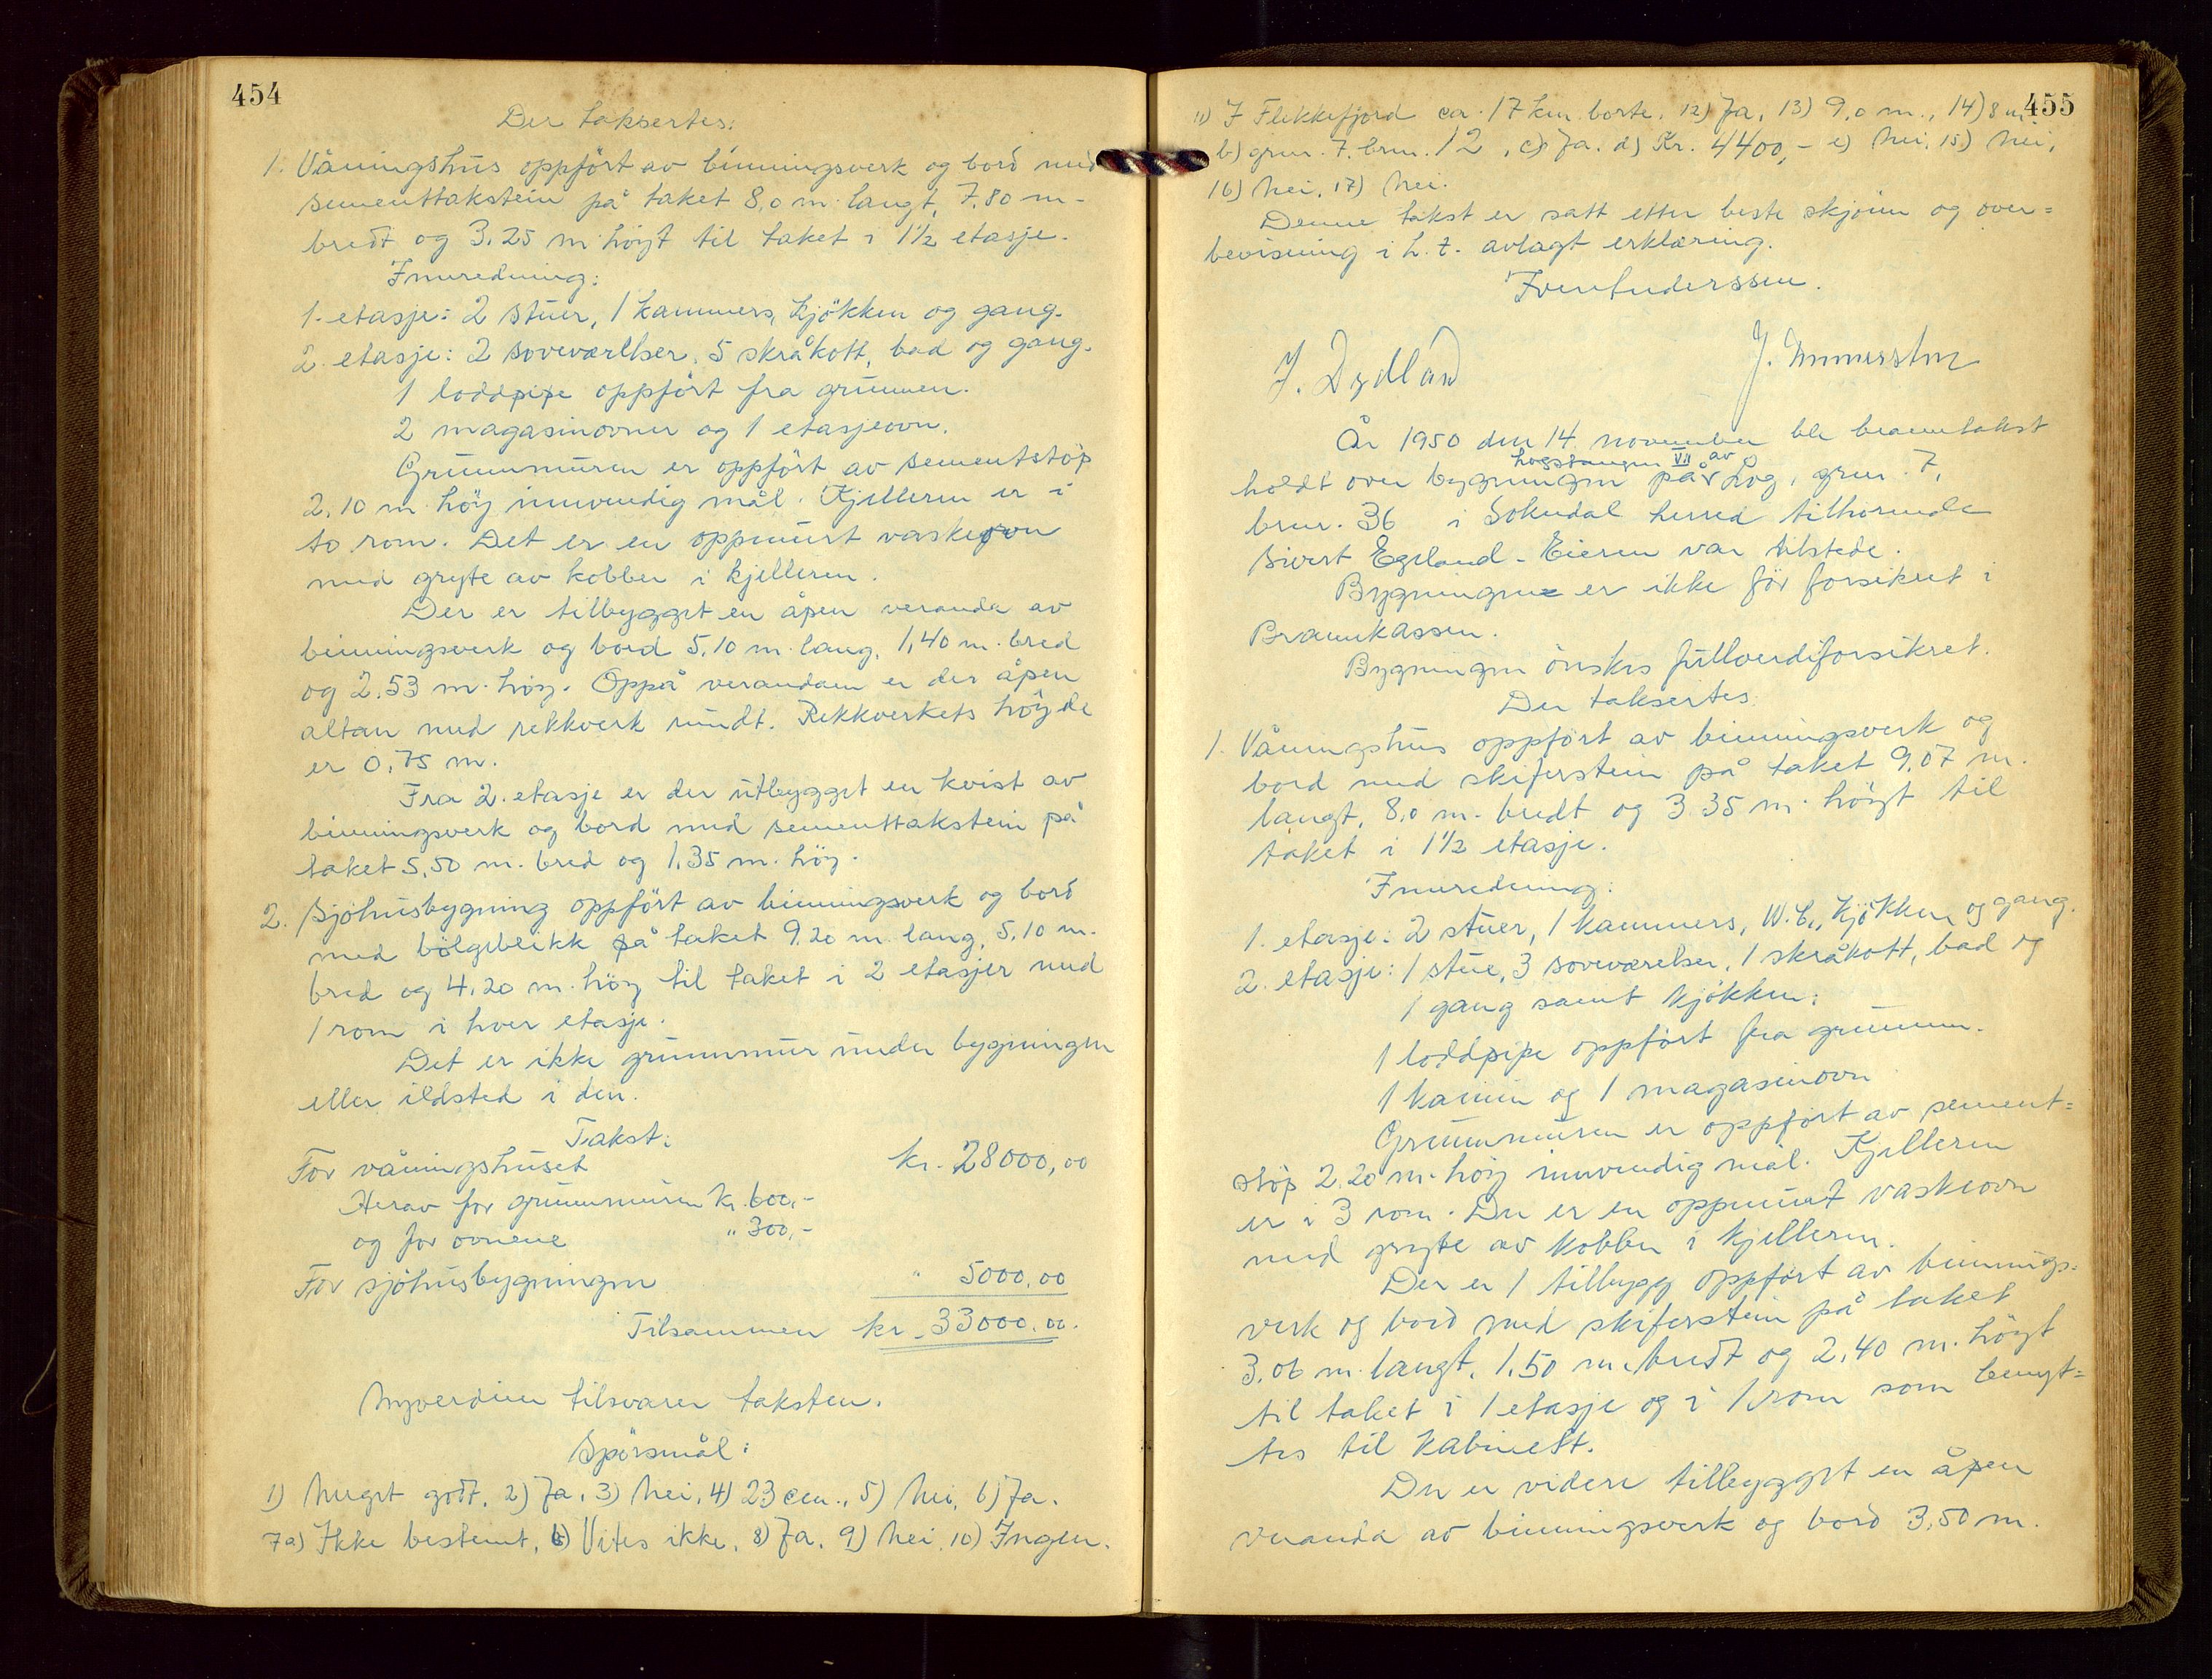 454
Der taksertes:
1. Våningshus oppført av binningsverk og bord med
sementtakstein på taket 8,0 m. langt, 7,80 m.
bredt og 3,25 m. høyt til taket i 1½ etasje.
Innredning:
1. etasje: 2 stuer, 1 kammers, kjøkken og gang.
2. etasje: 2 soveværelser, 5 skråkott, bad og gang.
1 loddpipe oppført fra grunnen.
2 magasinovner og 1 etasjeovn.
Grunnmuren er oppført av sementstøp
2,10 m. høy innvendig mål. Kjelleren er i
to rom. Det er en oppmurt vaskeovn
med gryte av kobber i kjelleren.
Der er tilbygget en åpen veranda av
binningsverk og bord 5,10 m. lang, 1,40 m. bred
og 2,53 m. høy. Oppå verandaen er der åpen
altan med rekkverk rundt. Rekkverkets høyde
er 0,75 m.
Fra 2. etasje er der utbygget en kvist av
binningsverk og bord med sementtakstein på
taket 5,50 m. bred og 1,35 m. høy.
2. Sjøhusbygning oppført av binningsverk og bord
med bølgeblikk på taket 9,20 m. lang, 5,10 m.
bred og 4,20 m. høy til taket i 2 etasjer med
1 rom i hver etasje.
Det er ikke grunnmur under bygningen
eller ildsted i den.
Takst:
For våningshuset kr. 28000,00
Herav for grunnmuren kr. 600,-
og for ovnene " 300,-
For sjøhusbygningen " 5000,00
Tilsammen kr. 33000,00.
Nyverdien tilsvarer taksten.
Spørsmål:
1) Meget godt, 2) Ja, 3) Nei, 4) 23 cm., 5) Nei, 6) Ja.
7a) Ikke bestemt, b) Vites ikke, 8) Ja, 9) Nei, 10) Ingen.
455
11) I Flekkefjord ca. 17 km borte, 12) Ja, 13) 9,0 m., 14) 8 m
b) grnr. 7, brnr. 12, c) Ja. d) Kr. 4400,- e) Nei, 15) Nei,
16) Nei, 17) Nei.
Denne takst er satt etter beste skjønn og over=
bevisning i h. t. avlagt erklæring.
J. Dydland
År 1950 den 14. november ble branntakst
hogstangen VII av
holdt over bygningen på Log, grnr. 7,
brnr. 36 i Sokndal herred tilhørende
Sivert Egeland. Eieren var tilstede.
Bygningene er ikke før forsikret i
Brannkassen.
Bygningen ønskes fullverdiforsikret.
Der taksertes:
1. Våningshus oppført av binningsverk og
bord med skiferstein på taket 9,07 m.
langt, 8,0 m. bredt og 3 35 m. høyt til
taket i 1½ etasje.
Innredning:
1. etasje: 2 stuer, 1 kammers, W.C., kjøkken og gang.
2. etasje: 1 stue, 3 soveværelser, 1 skråkott, bad og
1 gang samt kjøkken.
1 loddpipe oppført fra grunnen.
1 kamin og 1 magasinovn
Grunnmuren er oppført av sement=
støp 2,20 m. høy innvendig mål. Kjelleren
er i 3 rom. Der er en oppmurt vaskeovn
med gryte av kobber i kjelleren.
Der er 1 tilbygg oppført av binnings=
verk og bord med skiferstein på taket
3,06 m. langt, 1,50 m. bredt og 2,40 m. høyt
til taket i 1 etasje og i 1 rom som benyt=
tes til kabinett.
Der er videre tilbygget en åpen
veranda av binningsverk og bord 3,50 m.